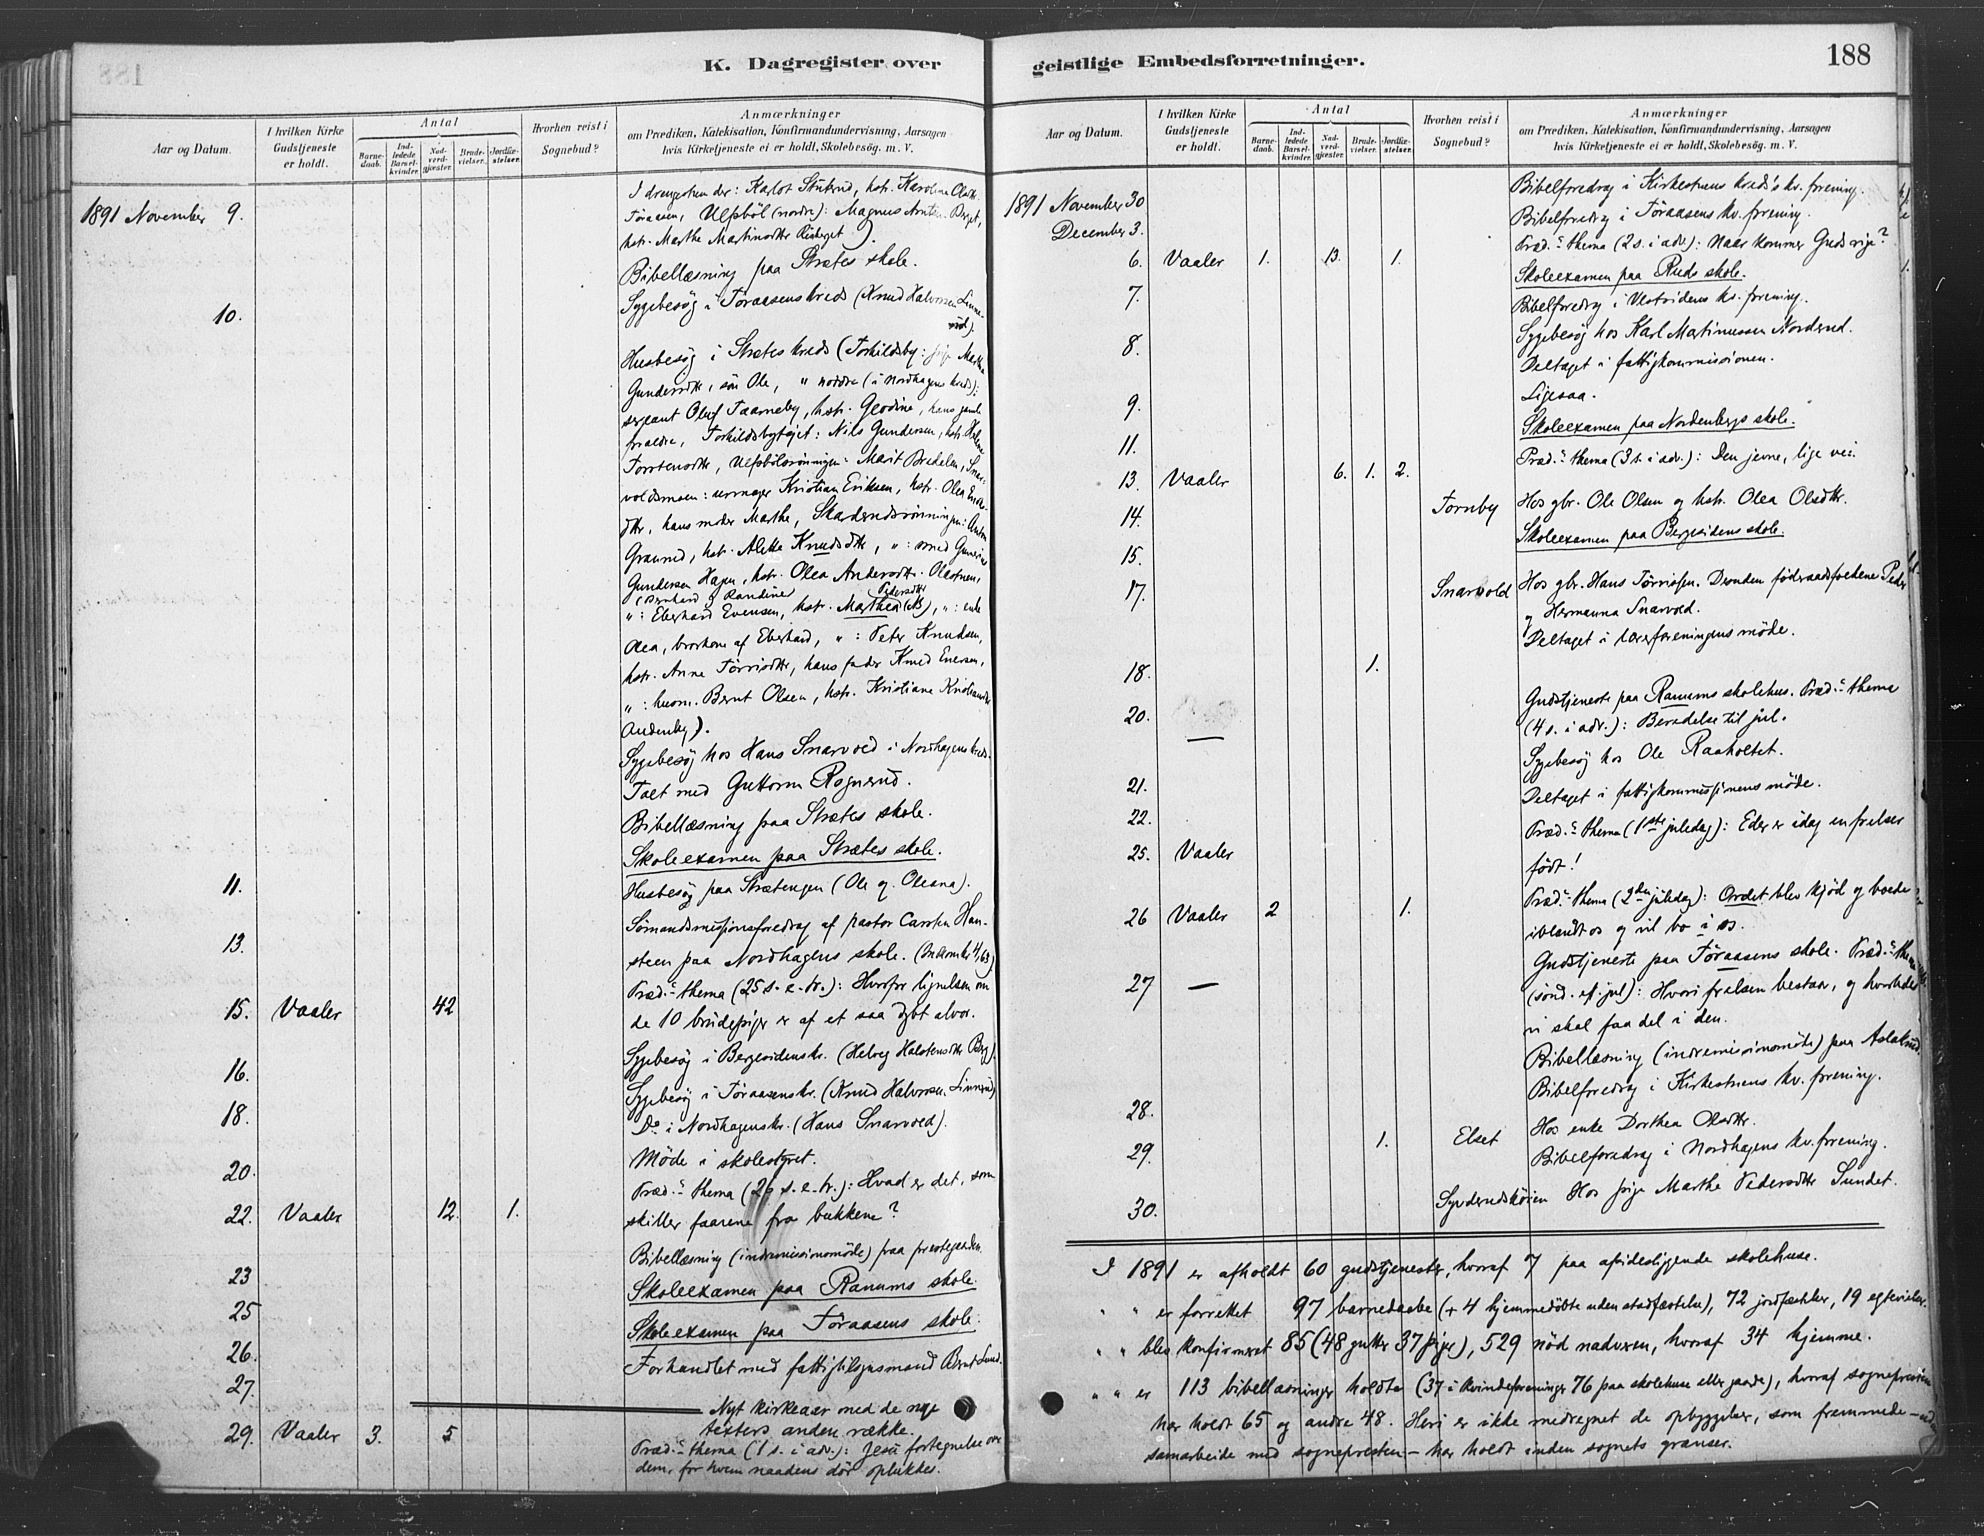 K. Dagregister over
geistlige Embedsforretninger.
188
Aar og Datum.
I hvilken Kirke Gudstjeneste er holdt.
Antal
Barnedaab.
Indledede Barselkvinder.
Nadverdgjester.
Brudevielser.
Jordfæstelser.
Hvorhen reist i Sognebud?
Anmærkninger
om Prædiken, Katekisation, Konfirmandundervisning, Aarsagen
hvis Kirketjeneste ei er holdt, Skolebesøg. m. V.
I drengestuen der: Karlot Stubrud, hstr. Karoline Olsdtr.
1891 November 9.
Føraasen, Ulfsböl (nordre): Magnus Arntsen Berget,
hstr. Marthe Martinsdtr
Bibellæsning paa Strætes skole.
10.
Sygebesög i Føraasens kreds (Knud Halvorsen Linne-
rud).
Husbesög i Strætes kreds (Torkildsby: pige Marthe
Gundersdtr, sön Ole, " nordre (i Nordhagens kreds):
sergeant Oluf Taarneby, hstr. Georgine, hans gamle
forældre, Torkildsbyhöjet: Nils Gundersen, hstr. Helene
Torstensdtr, Ulfsbölrönningen: Marit Bredelen, Snar-
voldsmoen: urmager Kristian Eriksen, hstr. Olea Eriks-
dtr, hans moder Marthe, Skarderudsrönningen: Anton
Graurud, hstr. Alette Knudsdtr, ": smed Gunerius
Gundersen Hagen, hstr. Olea Andersdtr.
(Bernhard & Randine Pedersdtr
": Eberhard Evensen, hstr. Marthea (
": enke
Olea, brorkone af Eberhard, ": Peter Knudsen,
hstr. Anne Tørrisdtr, hans fader Knud Enersen,
": husm. Bernt Olsen, hstr. Kristiane Kristiansdtr
Andenby).
Sygebesög hos Hans Snarvold i Nordhagens kreds.
Talt med Guttorm Rognerud.
Bibellæsning paa Strætes skole.
Skoleexamen paa Strætes skole.
11.
Husbesög paa Strætengen (Ole og Oleana).
Sömandsmissionsforedrag af pastor Carsten Han-
13.
steen paa Nordhagens skole. (Indkomst 4,63)
Præd.s thema (25 s. e. tr.): Hvorfor lignelsen om
15. Vaaler 42
de 10 brudepiger er af et saa dybt alvor.
Sygebesög i Bergesidenskr. (Helveg Halstensdtr Berg).
16.
Sygebesög i Føraasenskr. (Knud Halvorsen Linnerud)
18.
Do i Nordhagenskr. (Hans Snarvold).
Möde i skolestyret.
20.
Præd.s thema (26 s. e. tr.): Hvad er det, som
22. Vaaler 12. 1.
skiller faarene fra bukkene?
Bibellæsning (indremissionsmöde) paa prestegaarden.
23
Skoleexamen paa Ranums skole.
25
Skoleexamen paa Föraasens skole.
26.
Forhandlet med fattigtilsynsmand Bernt Lund.
27.
Nyt kirkeaar med de nye
texters anden række.
29. Vaaler 3. 5
Præd.s thema (1 s. i adv.): Jesu fortegnelse over
dem, for hvem naadens dör oplukkes.
Aar og Datum.
I hvilken Kirke Gudstjeneste er holdt.
Antal
Barnedaab.
Indledede Barselkvinder.
Nadverdgjester.
Brudevielser.
Jordfæstelser.
Hvorhen reist i Sognebud?
Anmærkninger
om Prædiken, Katekisation, Konfirmandundervisning, Aarsagen
hvis Kirketjeneste ei er holdt, Skolebesøg. m. V.
1891 November 30 Bibelforedrag i Kirkestuens kreds's kv. forening.
December 3. Bibelforedrag i Føraasens kv. forening.
6. Vaaler 1. 13. 1. Præd.s thema (2 s. i adv.): Naar kommer Guds rige?
7. Skoleexamen paa Ruds skole.
Bibelforedrag i Vestsidens kv. forening.
8. Sygebesög hos Karl Matinussen Nordsrud.
Deltaget i fattigkommissionen.
9. Ligesaa.
11. Skoleexamen paa Nordenbergs skole.
13. Vaaler 6. 1. 2. Præd.s thema (3 s. i adv.): Den jevne, lige vei.
14. Tornby Hos gbr. Ole Olsen og hstr. Olea Olsdtr.
15. Skoleexamen paa Bergesidens skole.
17. Snarvold Hos gbr. Hans Tørrissen. Desuden föderaadsfolkene Peder
og Hermanna Snarvold.
Deltaget i lærerforeningens möde.
18. 1.
20. Gudstjeneste paa Ranums skolehus. Præd.s thema
— (4 s. i adv.): Beredelse til jul.
Sygebesög hos Ole Raaholtet.
21.
Deltaget i fattigkommissionens möde.
22.
Præd.s thema (1ste juledag): Eder er idag en frelser
25. Vaaler
född!
26 Vaaler 2 1. Præd.s thema (2den juledag): Ordet blev kjöd og boede
iblandt os og vil bo i os.
Gudstjeneste paa Føraasens skole. Præd.s thema
27 — (sönd. ef. jul): Hvori frelsen bestaar, og hvorledes
vi skal faa del i den.
Bibellæsning (indremissionsmöde) paa Aslakrud.
Bibelforedrag i Kirkestuens kv. forening.
28.
29. 1. Elset Hos enke Dorthea Olsdtr.
Bibelforedrag i Nordhagens kv. forening.
30. Hos pige Marthe Pedersdtr Sundet.
I 1891 er afholdt 60 gudstjenester, hvoraf 7 paa afsidesliggende skolehuse.
" " er forrettet 97 barnedaabe (+ 4 hjemmedöbte uden stadfæstelse), 72 jordfæstelser, 19 egtevielser.
" " blev konfirmeret 85 (48 gutter 37 piger), 529 nöd nadveren, hvoraf 34 hjemme.
" " er 113 bibellæsninger holdte (37 i kvindeforeninger 76 paa skolehuse eller gaarde), hvoraf sognepresten
har holdt 65 og andre 48. Heri er ikke medregnet de opbyggelser, som fremmede –
samarbeide med sognepresten – har holdt inden sognets grænser.